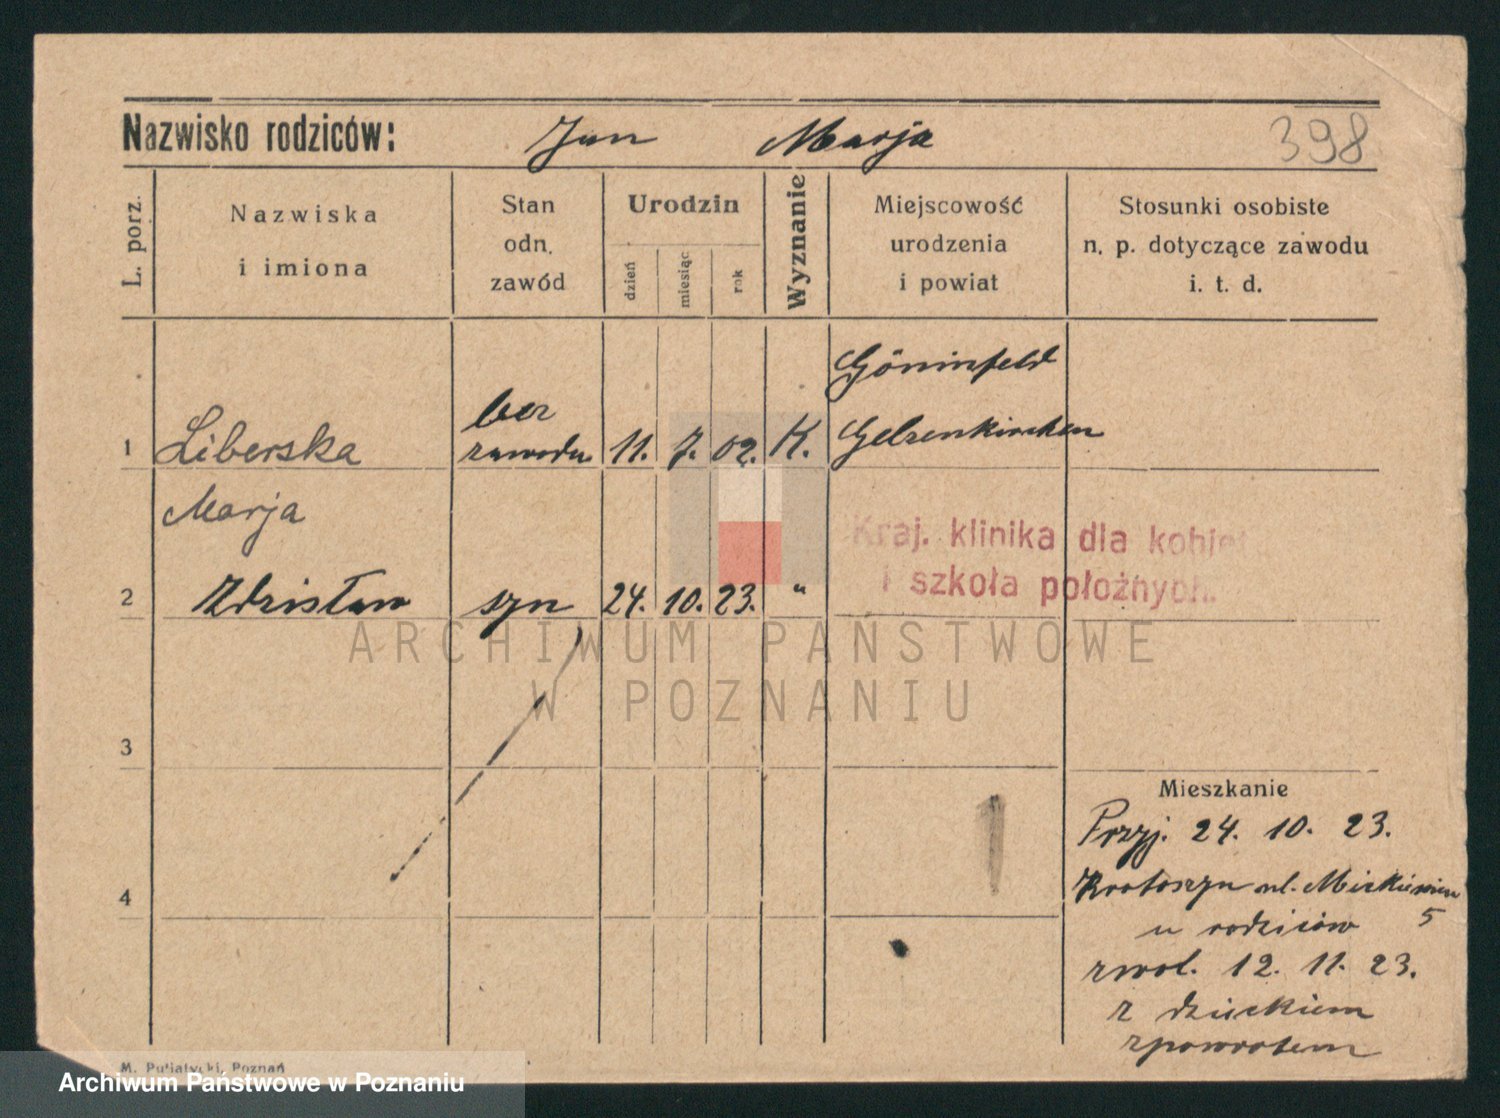 Nazwisko rodziców: Jan Marja 398
L. porz.
Nazwiska
i imiona
Stan
odn.
zawód
Urodzin
dzień
miesiąc
rok
Wyznanie
Miejscowość
urodzenia
i powiat
Stosunki osobiste
n. p. dotyczące zawodu
i. t. d.
Göninfeld
bez
1 Liberska zawodu 11. 7. 02. K. Gelsenkirchen
Marja
Kraj. klinika dla kobiet
i szkoła położnych.
2 Zdzisław syn 24. 10. 23. "
ARCHIWUM PAŃSTWOWE
W POZNANIU
3
Mieszkanie
Przyj. 24. 10. 23.
4
Krotoszyn ul. Mickiewicza
u rodziców 5
zwol. 12. 11. 23.
z dzieckiem
zpowrotem
M. Putiatycki, Poznań
Archiwum Państwowe w Poznaniu